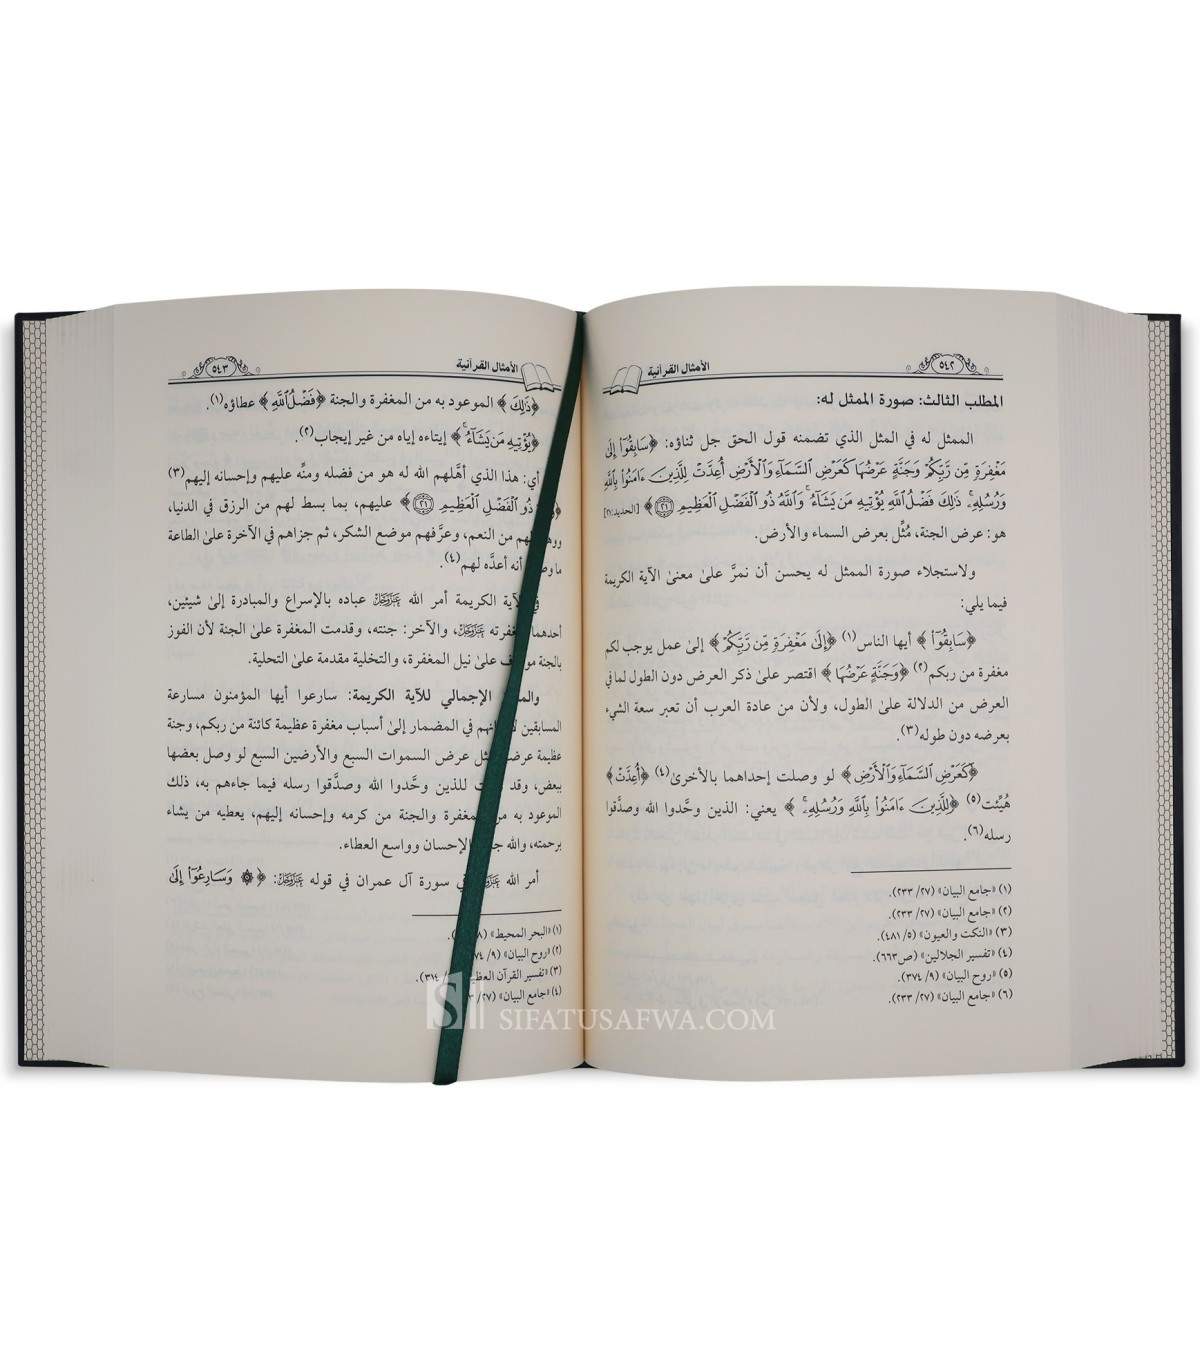 الأمثال القرآنية
٥٤٢
المطلب الثالث: صورة الممثل له:
الممثل له في المثل الذي تضمنه قول الحق جل ثناؤه: ﴿سَابِقُوٓا۟ إِلَىٰ
مَغْفِرَةٍ مِّن رَّبِّكُمْ وَجَنَّةٍ عَرْضُهَا كَعَرْضِ ٱلسَّمَآءِ وَٱلْأَرْضِ أُعِدَّتْ لِلَّذِينَ ءَامَنُوا۟ بِٱللَّهِ
وَرُسُلِهِۦ ۚ ذَٰلِكَ فَضْلُ ٱللَّهِ يُؤْتِيهِ مَن يَشَآءُ ۚ وَٱللَّهُ ذُو ٱلْفَضْلِ ٱلْعَظِيمِ ٢١﴾ [الحديد:٢١]
هو: عرض الجنة، مُثِّل بعرض السماء والأرض.
ولاستجلاء صورة الممثل له يحسن أن نمرَّ علىٰ معنىٰ الآية الكريمة
فيما يلي:
﴿سَابِقُوٓا۟﴾ أيها الناس(١) ﴿إِلَىٰ مَغْفِرَةٍ مِّن رَّبِّكُمْ﴾ إلىٰ عمل يوجب لكم
مغفرة من ربكم(٢) ﴿وَجَنَّةٍ عَرْضُهَا﴾ اقتصر علىٰ ذكر العرض دون الطول لما في
العرض من الدلالة علىٰ الطول، ولأن من عادة العرب أن تعبر سعة الشيء
بعرضه دون طوله(٣).
﴿كَعَرْضِ ٱلسَّمَآءِ وَٱلْأَرْضِ﴾ لو وصلت إحداهما بالأخرىٰ(٤) ﴿أُعِدَّتْ﴾
هُيِّئت(٥) ﴿لِلَّذِينَ ءَامَنُوا۟ بِٱللَّهِ وَرُسُلِهِۦ ۚ﴾ يعني: الذين وحَّدوا الله وصدَّقوا
رسله(٦).
(١) «جامع البيان» (٢٧/ ٢٣٣).
(٢) «جامع البيان» (٢٧/ ٢٣٣).
(٣) «النكت والعيون» (٥/ ٤٨١).
(٤) «تفسير الجلالين» (ص٦٦٣).
(٥) «روح البيان» (٩/ ٣٧٤).
(٦) «جامع البيان» (٢٧/ ٢٣٣).
الأمثال القرآنية
٥٤٣
﴿ذَٰلِكَ﴾ الموعود به من المغفرة والجنة ﴿فَضْلُ ٱللَّهِ﴾ عطاؤه(١).
﴿يُؤْتِيهِ مَن يَشَآءُ ۚ﴾ إيتاءه إياه من غير إيجاب(٢).
أي: هذا الذي أهَّلهم الله له هو من فضله ومنِّه عليهم وإحسانه إليهم(٣)
ذُو ٱلْفَضْلِ ٱلْعَظِيمِ ٢١﴾ عليهم، بما بسط لهم من الرزق في الدنيا،
من النعم، وعرَّفهم موضع الشكر، ثم جزاهم في الآخرة علىٰ الطاعة
أنه أعدَّه لهم(٤).
الآية الكريمة أمر الله عَزَّوَجَلَّ عباده بالإسراع والمبادرة إلىٰ شيئين،
أحدهما مغفرته عَزَّوَجَلَّ، والآخر: جنته، وقدمت المغفرة علىٰ الجنة لأن الفوز
بالجنة علىٰ نيل المغفرة، والتخلية مقدمة علىٰ التحلية.
الإجمالي للآية الكريمة: سارعوا أيها المؤمنون مسارعة
المسابقين في المضمار إلىٰ أسباب مغفرة عظيمة كائنة من ربكم، وجنة
عظيمة عرض السموات السبع والأرضين السبع لو وصل بعضها
ببعض، وقد للذين وحَّدوا الله وصدَّقوا رسله فيما جاءهم به، ذلك
الموعود به من المغفرة والجنة من كرمه وإحسانه إليهم، يعطيه من يشاء
برحمته، والله الإحسان وواسع العطاء.
أمر الله عَزَّوَجَلَّ في سورة آل عمران في قوله عَزَّوَجَلَّ: ﴿۞ وَسَارِعُوٓا۟ إِلَىٰ
(١) «البحر المحيط»
(٢) «روح البيان» (٩/
(٣) «تفسير القرآن ٣١٤).
(٤) «جامع البيان» (٢٧/
SIFATUSAFWA.COM